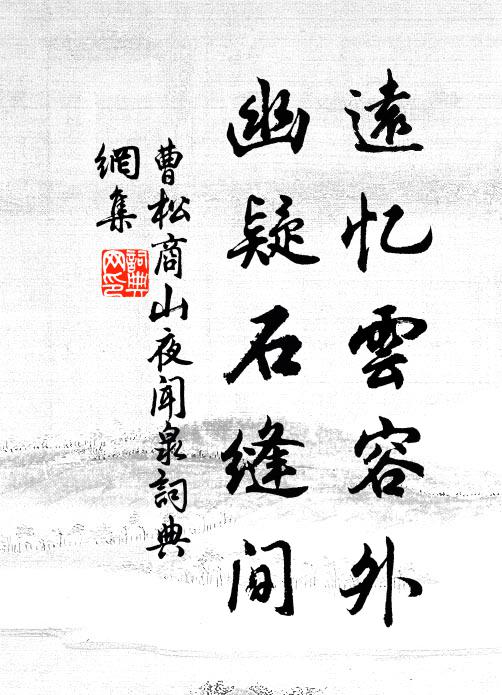 遠忆雲容外
幽疑石缝间
曹松商山夜闻泉詞典
網集
詞典
网印